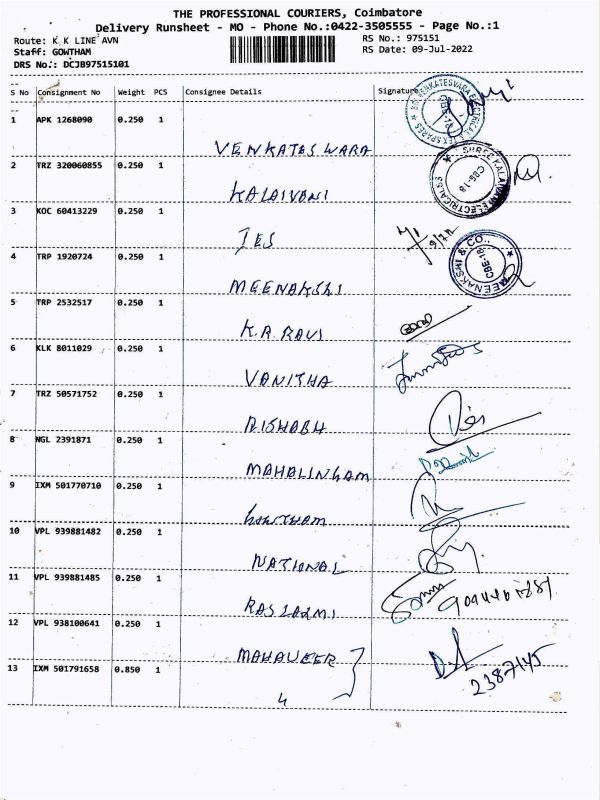 THE PROFESSIONAL COURIERS, Coimbatore
Delivery Runsheet - MO - Phone No.:0422-3505555 - Page No.:1
Route: K K LINE AVN
RS No.: 975151
Staff: GOWTHAM
RS Date: 09-Jul-2022
DRS No.: DCJB97515101
S No Consignment No Weight PCS Consignee Details Signature
1 APK 1268090 0.250 1
VENKATESWARA
2 TRZ 320060855 0.250 1
KALAIVANI
SHREE KALAIVANI ELECTRICALSS
CBE-18
3 KOC 60413229 0.250 1
IES
4 TRP 1920724 0.250 1
MEENAKSHI
MEENAKSHI & CO.,
CBE-18
5 TRP 2532517 0.250 1
K.R.RAVI
6 KLK 8011029 0.250 1
VANITHA
7 TRZ 50571752 0.250 1
RISHABH
8 NGL 2391871 0.250 1
MAHALINGAM
9 IXM 501770710 0.250 1
GOWTHAM
10 VPL 939881482 0.250 1
NATIONAL
11 VPL 939881485 0.250 1
RAS LAXMI
12 VPL 938100641 0.250 1
MAHAVEER
2387145
13 IXM 501791658 0.850 1
4